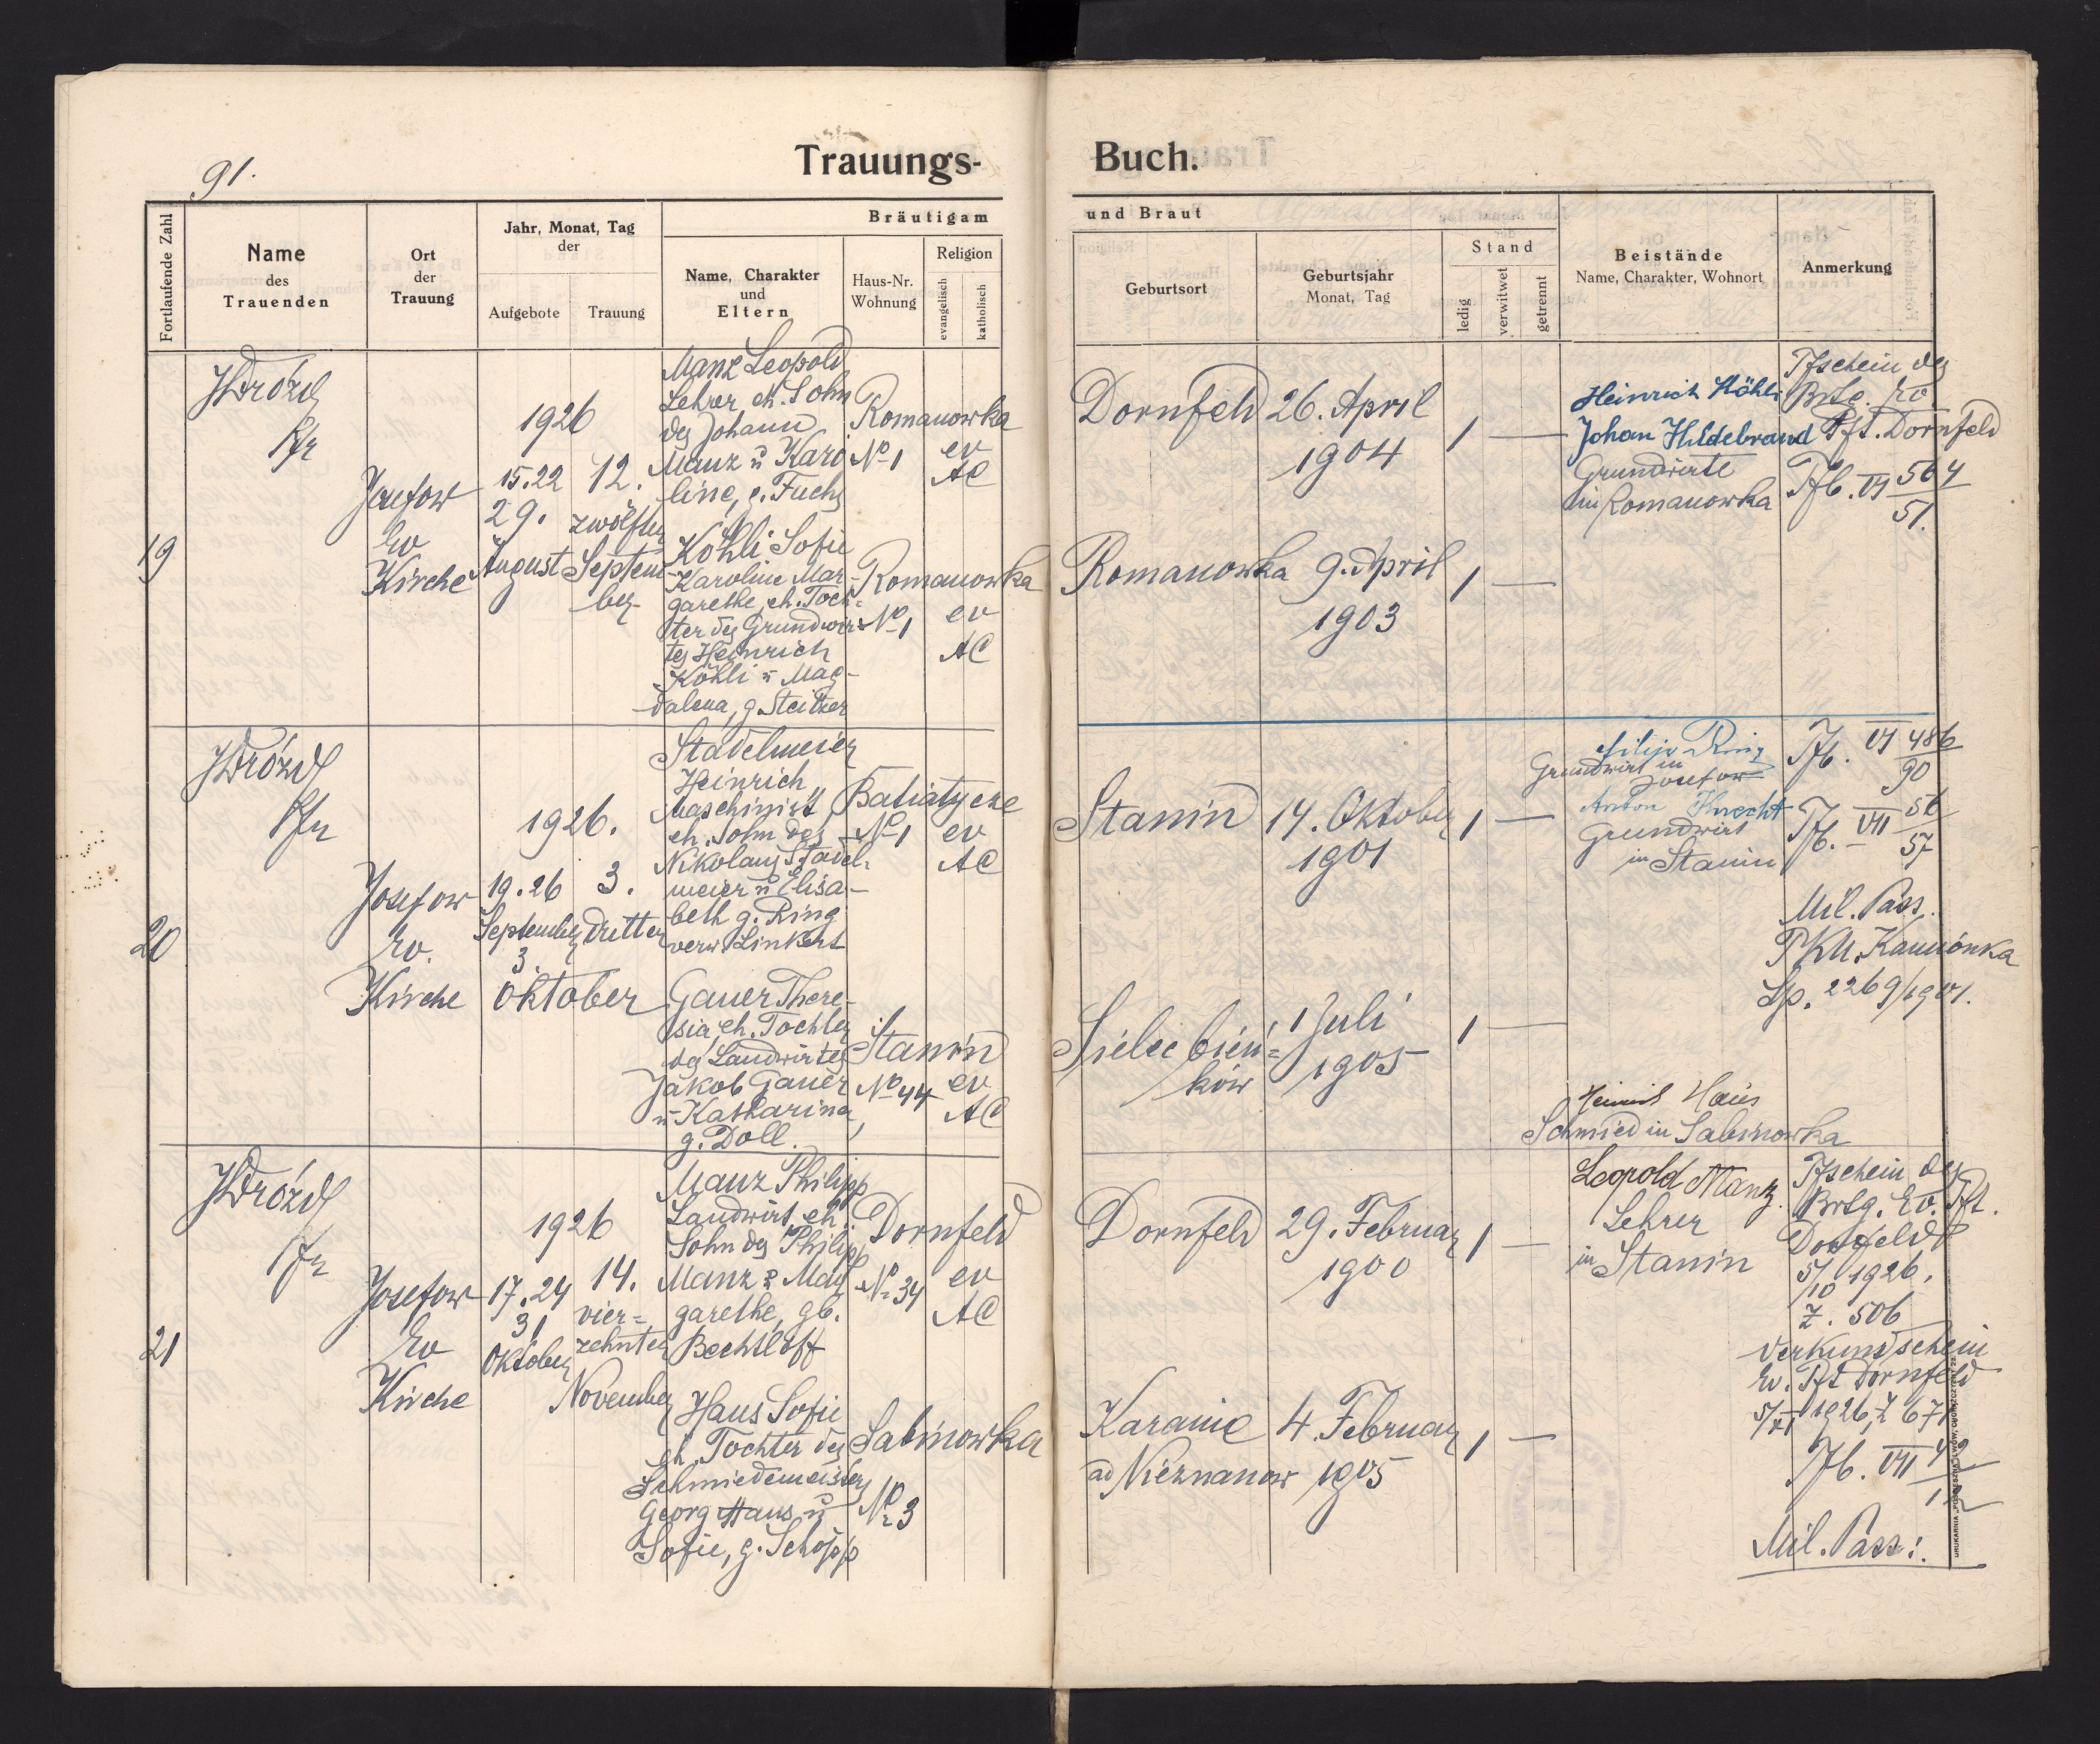 91.
Trauungs-
Buch.
Fortlaufende Zahl
Name
des
Trauenden
Ort
der
Trauung
Jahr, Monat, Tag
der
Aufgebote
Trauung
Bräutigam
Name, Charakter
und
Eltern
Haus-Nr.
Wohnung
Religion
evangelisch
katholisch
und Braut
Geburtsort
Geburtsjahr
Monat, Tag
Stand
ledig
verwitwet
getrennt
Beistände
Name, Charakter, Wohnort
Anmerkung
19
JDrózd
Pfr
Josefow
Ev
Kirche
1926
15.22
29.
August
12.
zwölfter
Septem-
ber
Manz Leopold
Lehrer eh. Sohn
des Johann
Manz u Karo
line, g. Fuchs
Romanowka
No 1
ev
AC
Köhli Sofie
Karoline Mar-
garethe, eh. Toch=
ter des Grundwir=
tes Heinrich
Köhli u Mag-
dalena, g. Steitzer
Romanowka
No 1
ev
AC
Dornfeld
26. April
1904
1 —
Romanowka
9. April
1903
1 —
Heinrich Köhli
Johan Hildebrand
Grundwirte
in Romanowka
Tfschein des
Brtg. Ev.
Pft. Dornfeld
Tfb. VI 564
51.
20
JDrózd
Pfr
Josefow
Ev.
Kirche
1926.
19.26
September
3.
Oktober
3.
dritter
Stadelmeier
Heinrich
Maschinist
eh. Sohn des
Nikolaus Stadel=
meier u Elisa-
beth g. Ring
verw Linkert
Batiatycze
No 1
ev
AC
Gauer There-
sia, eh. Tochter
des Landwirtes
Jakob Gauer
u Katharina,
g. Doll.
Stanin
No 44
ev
AC
Stanin
14. Oktober
1901
1 —
Sielec bień=
ków
1 Juli
1905
1 —
Filip Ring
Grundwirt in
Josefow
Anton Knecht
Grundwirt
in Stanin
Tfb. VI 486
90
Tfb. VII 56
57
Mil. Pass.
PKU. Kamionka
Lp. 2269/1901.
21
JDrózd
Pfr
Josefow
Ev
Kirche
1926
17.24
31
Oktober
14.
vier=
zehnter
November
Manz Philipp
Landwirt, eh.
Sohn des Philipp
Manz u Mar
garethe, gb.
Bechtloff
Dornfeld
No 34
ev
AC
Haus Sofie
eh. Tochter des
Schmiedemeisters
Georg Haus u
Sofie, g. Schöpp
Sabinowka
No 3
Dornfeld
29. Februar
1900
1 —
Karanie
ad Nieznanow
4. Februar
1905
1 —
Heinrich Haus
Schmied in Sabinowka
Leopold Manz
Lehrer
in Stanin
Tfschein des
Brtg. Ev. Pft.
Dornfeld
5/10 1926.
Z. 506
Verkundschein
Ev. Pft Dornfeld
5/XI 1926, Z 671
Tfb. VII 42
12
Mil. Pass:.